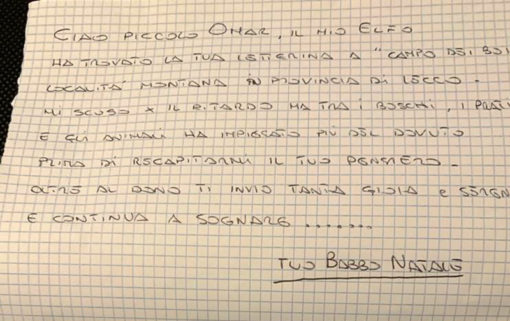 CIAO PICCOLO OMAR, IL MIO ELFO
HA TROVATO LA TUA LETTERINA A "CAMPO DEI BOI
LOCALITÀ MONTANA IN PROVINCIA DI LECCO.
MI SCUSO X IL RITARDO MA TRA I BOSCHI, I PRATI
E GLI ANIMALI HA IMPIEGATO PIÙ DEL DOVUTO
PRIMA DI RECAPITARMI IL TUO PENSIERO.
OLTRE AL DONO TI INVIO TANTA GIOIA E SEREN
E CONTINUA A SOGNARE .......
TUO BABBO NATALE